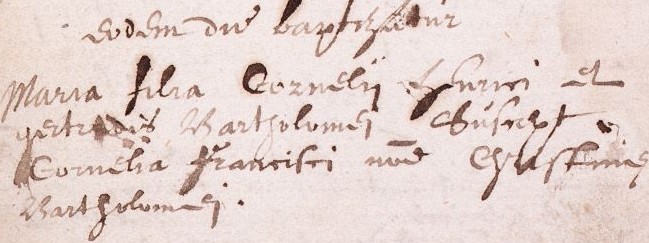 eodem die baptizatur
Maria filia Cornelij Henrici et
gertrudis Bartholomei Suscept.
Cornelia Francisci noe Christine
Bartholomei.